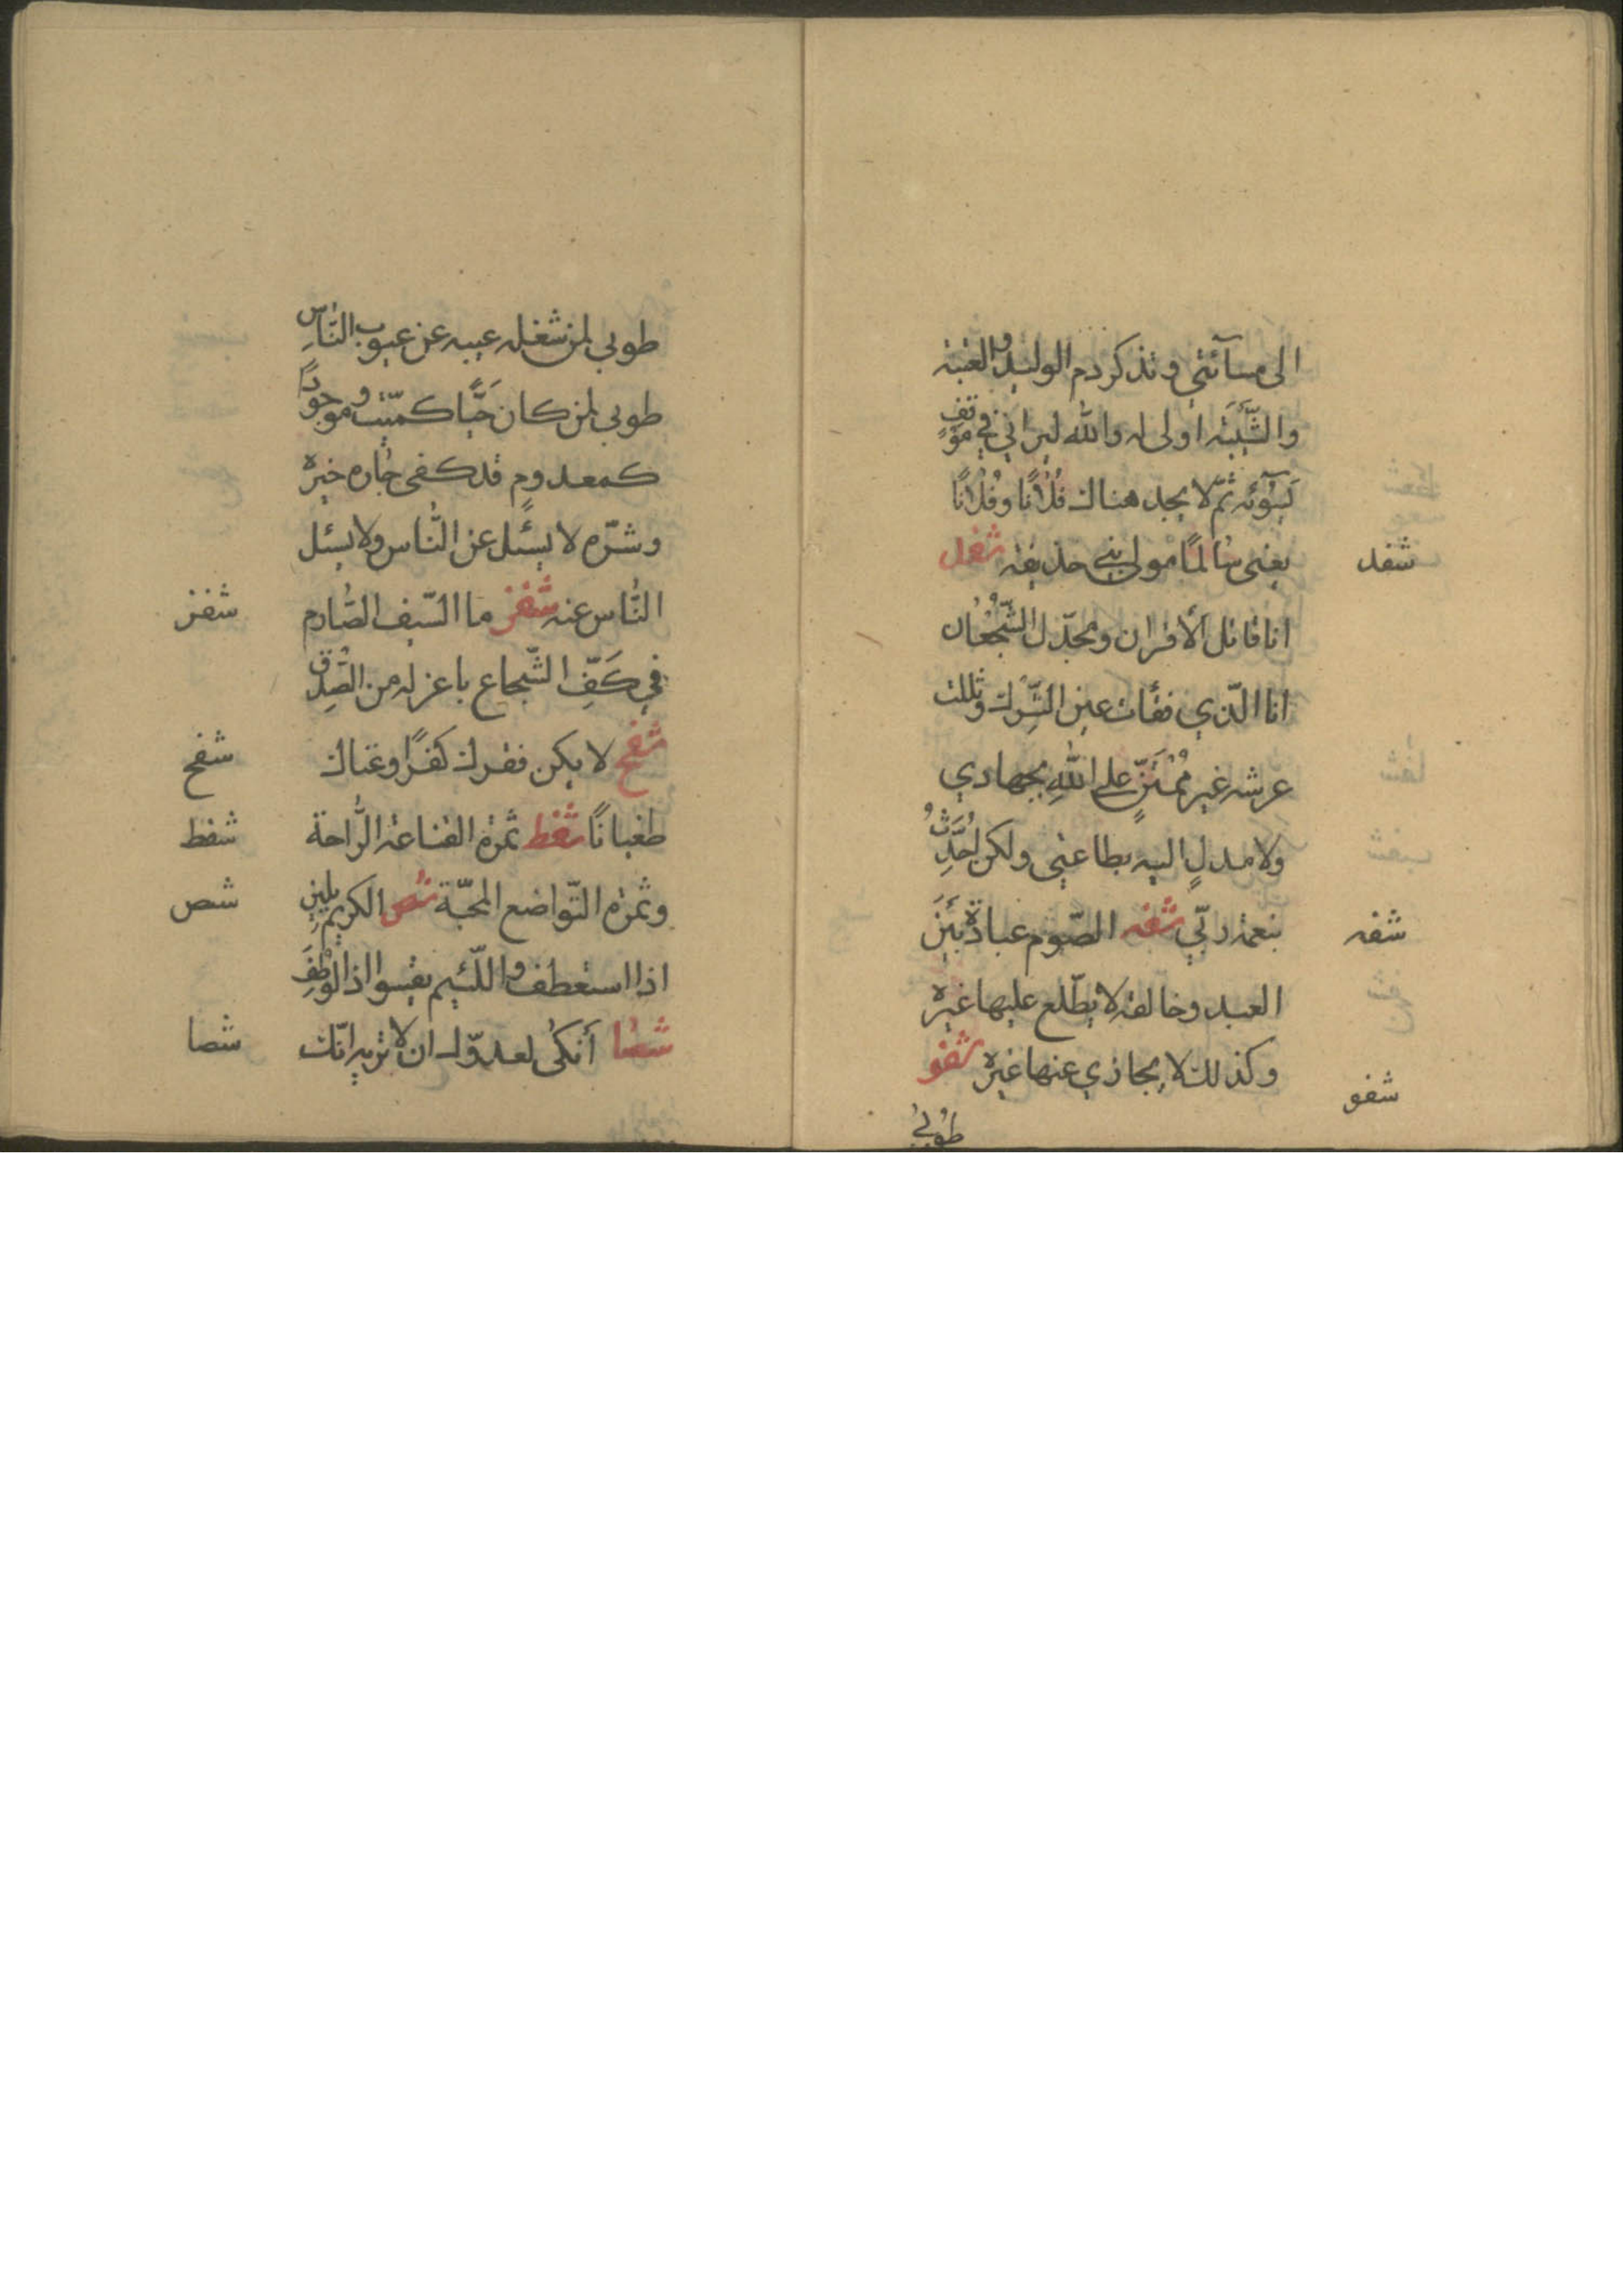 الى مسآئتي وتذكر دم الوليد والعتبة
والشّيبَة اولى له والله ليراني في موقفٍ
يَسُوئه ثمّ لا يجد هناك فُلانًا وفُلانًا
يعني سالمًا مولى بني حذيفة شفد شفد
انا قاتل الأقران ومجدّل الشّجعان
انا الّذي فقأت عين الشّرك وثللت
عرشه غير مُمْتَنٍّ على اللهِ بجهادي
ولا مدلٍ اليه بطاعتي ولكن اُحَدِّثُ
بنعمة ربّي شفه الصّوم عبادة بَيْنَ شفه
العبد وخالقه لا يطّلع عليها غيره
وكذلك لا يجازي عنها غيره شفو شفو
طوبى
طوبى لمن شغله عيبه عن عيوب النّاسِ
طوبى لمن كان حَيًّا كميّت وموجودًا
كمعدوم قد كفى جاره خيره
وشرّه لا يسئل عن النّاس ولا يسئل
النّاس عنه شفز ما السّيف الصّارم شفز
في كَفِّ الشّجاع باعز له من الصّدق
شفح لا يكن فقرك كفرًا وغناك شفح
طغيانًا شفط ثمرة القناعة الرّاحة شفط
وثمرة التّواضع المحبّة شص الكريم يلين شص
اذا استعطف واللّئيم يقسو اذا لوطِفَ
شصا أَنكى لعدوّك ان لا تريه انّك شصا